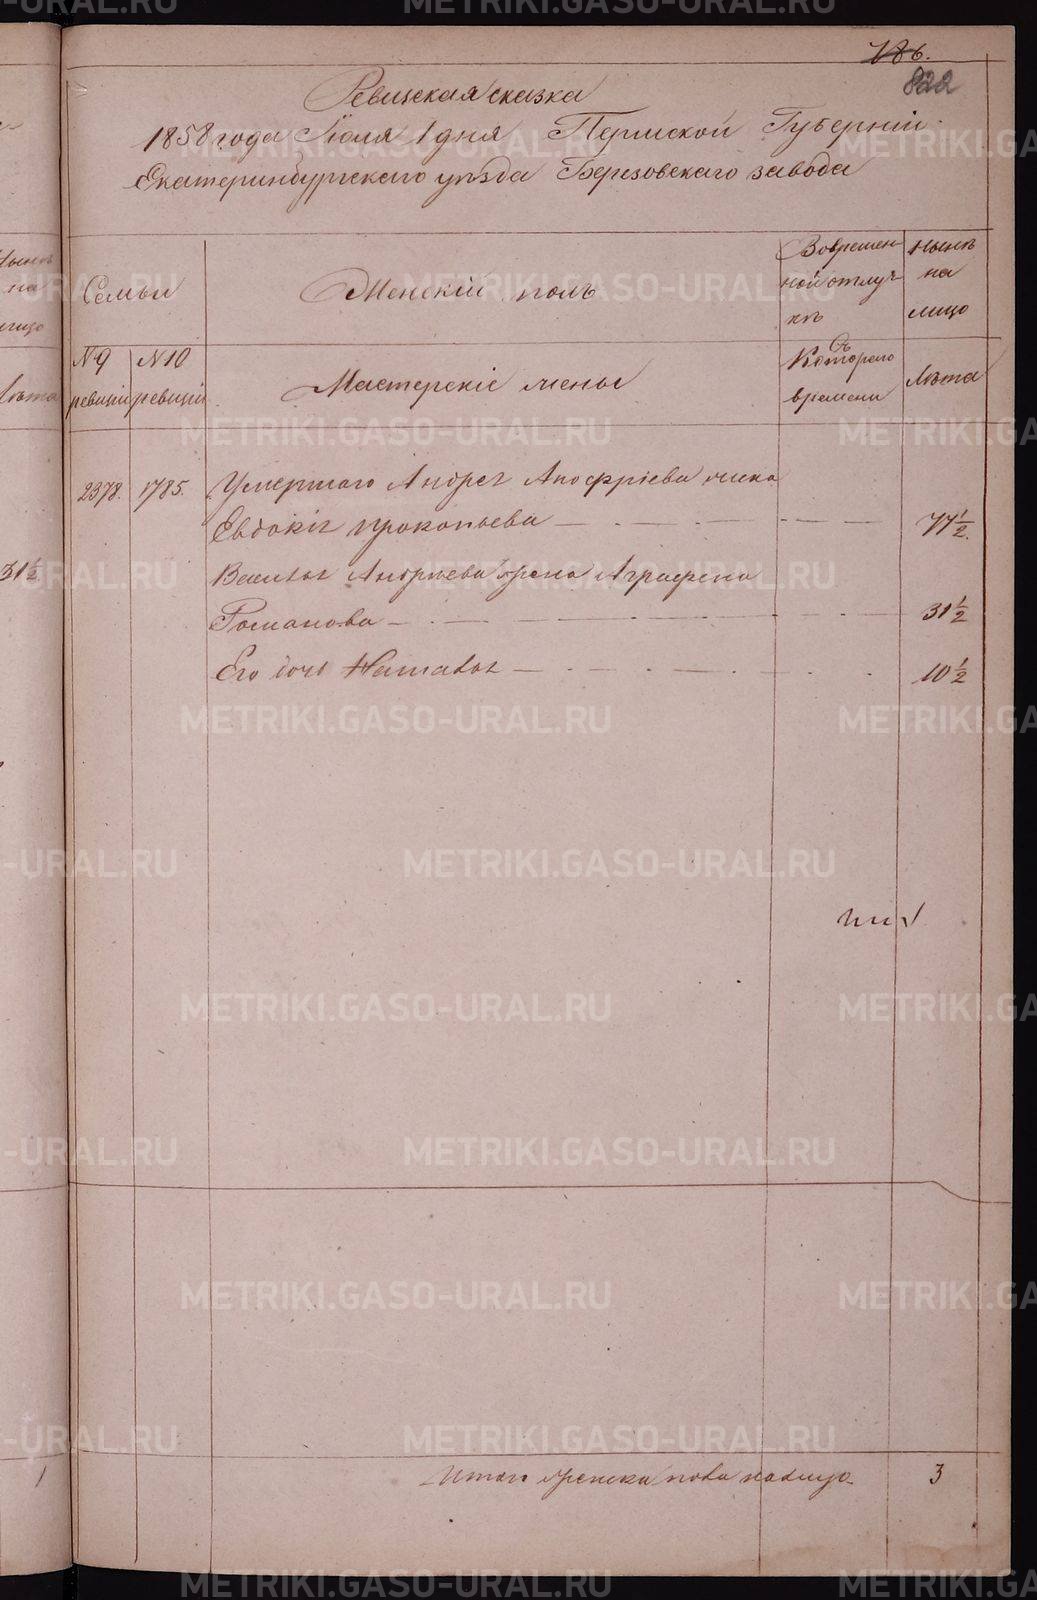 186.
822
Ревизская сказка
1858 года Июля 1 дня Пермской Губернiи
Екатеринбургскаго уѣзда Березовскаго завода
Семьи
Женскiй полъ
Вовремен
ной отлуч
кѣ
нынѣ
на
лицо
№ 9
ревизiи
№ 10
ревизiи
Мастерскiе жены
Съ
Котораго
времени
Лѣта
2378. 1785. Умершаго Андрея Апофрiева жена
Евдокiя Прокопьева 77 1/2.
Василья Андрѣева жена Аграфена
Романова 31 1/2
Его дочь Наталья 10 1/2
Итого женска пола налицо 3
нынѣ
на
лицо
Лѣта
31 1/2
1
METRIKI.GASO-URAL.RU